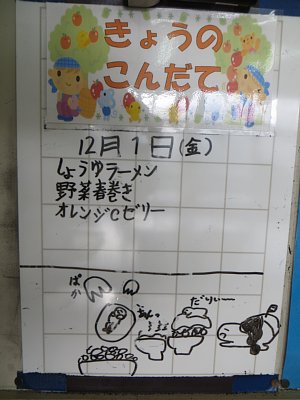 きょうの
こんだて
12月1日(金)
しょうゆラーメン
野菜春巻き
オレンジCゼリー
ぱか
だりぃー